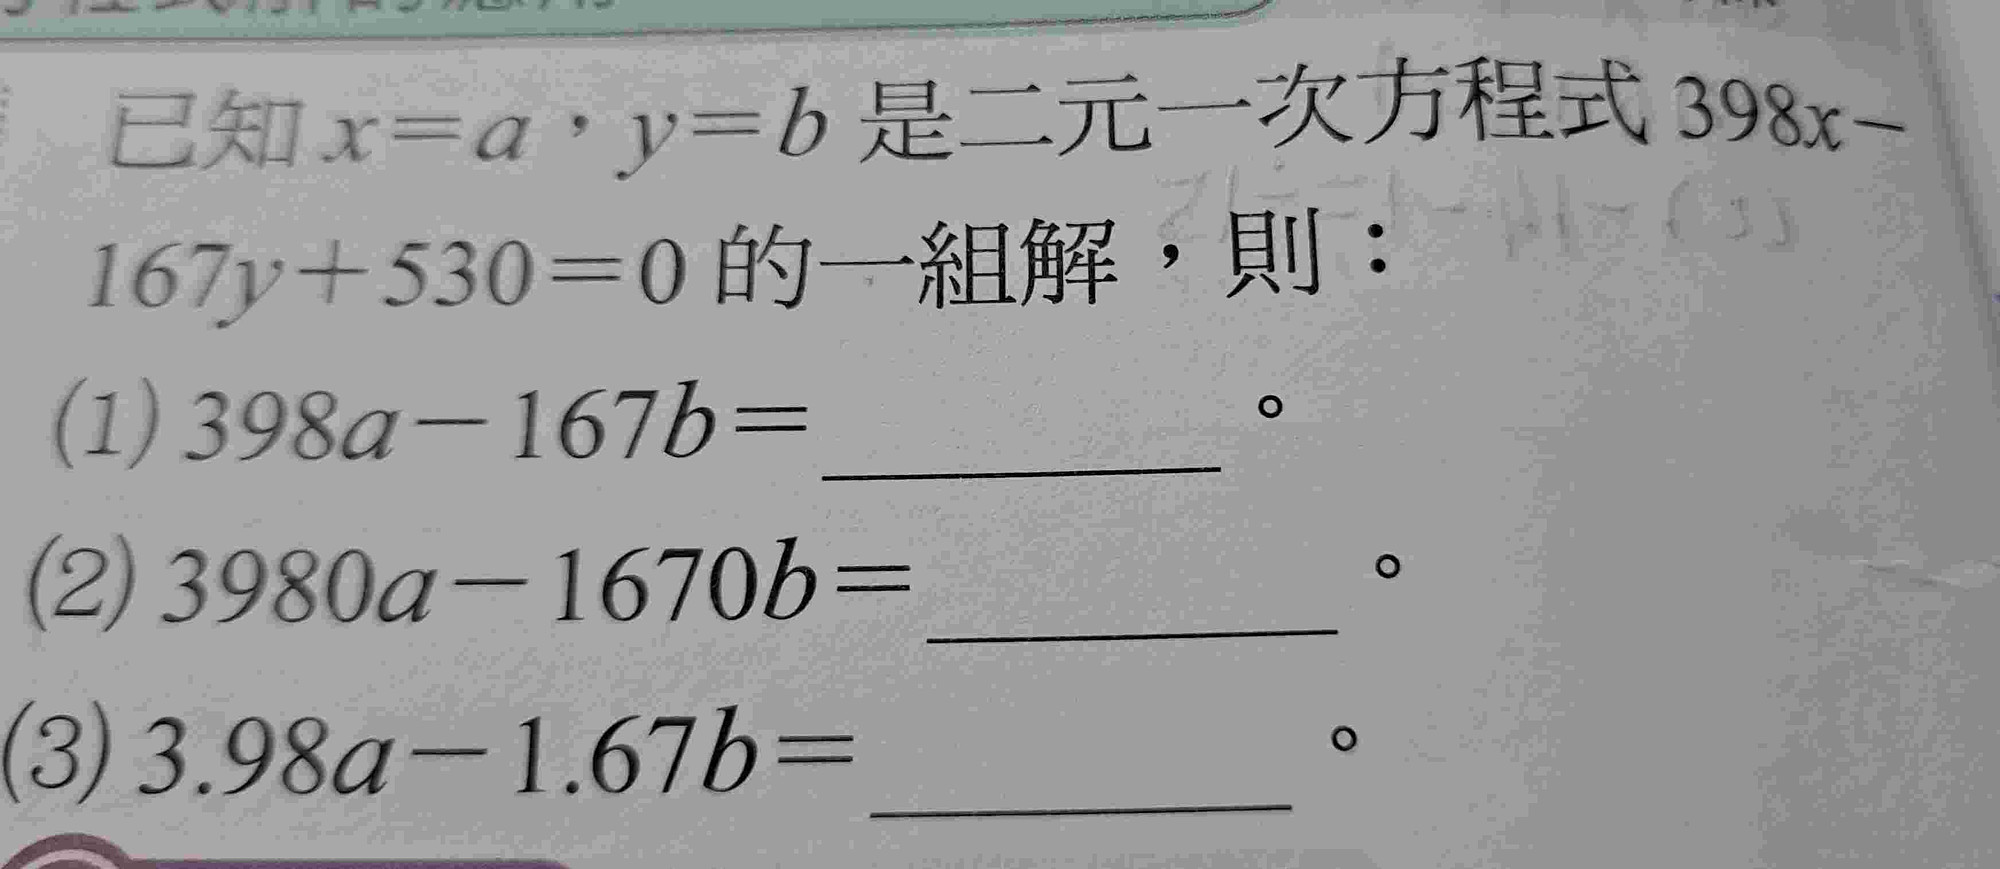 已知 x=a，y=b 是二元一次方程式 398x−
167y+530=0 的一組解，則：
(1) 398a−167b=________。
(2) 3980a−1670b=________。
(3) 3.98a−1.67b=________。